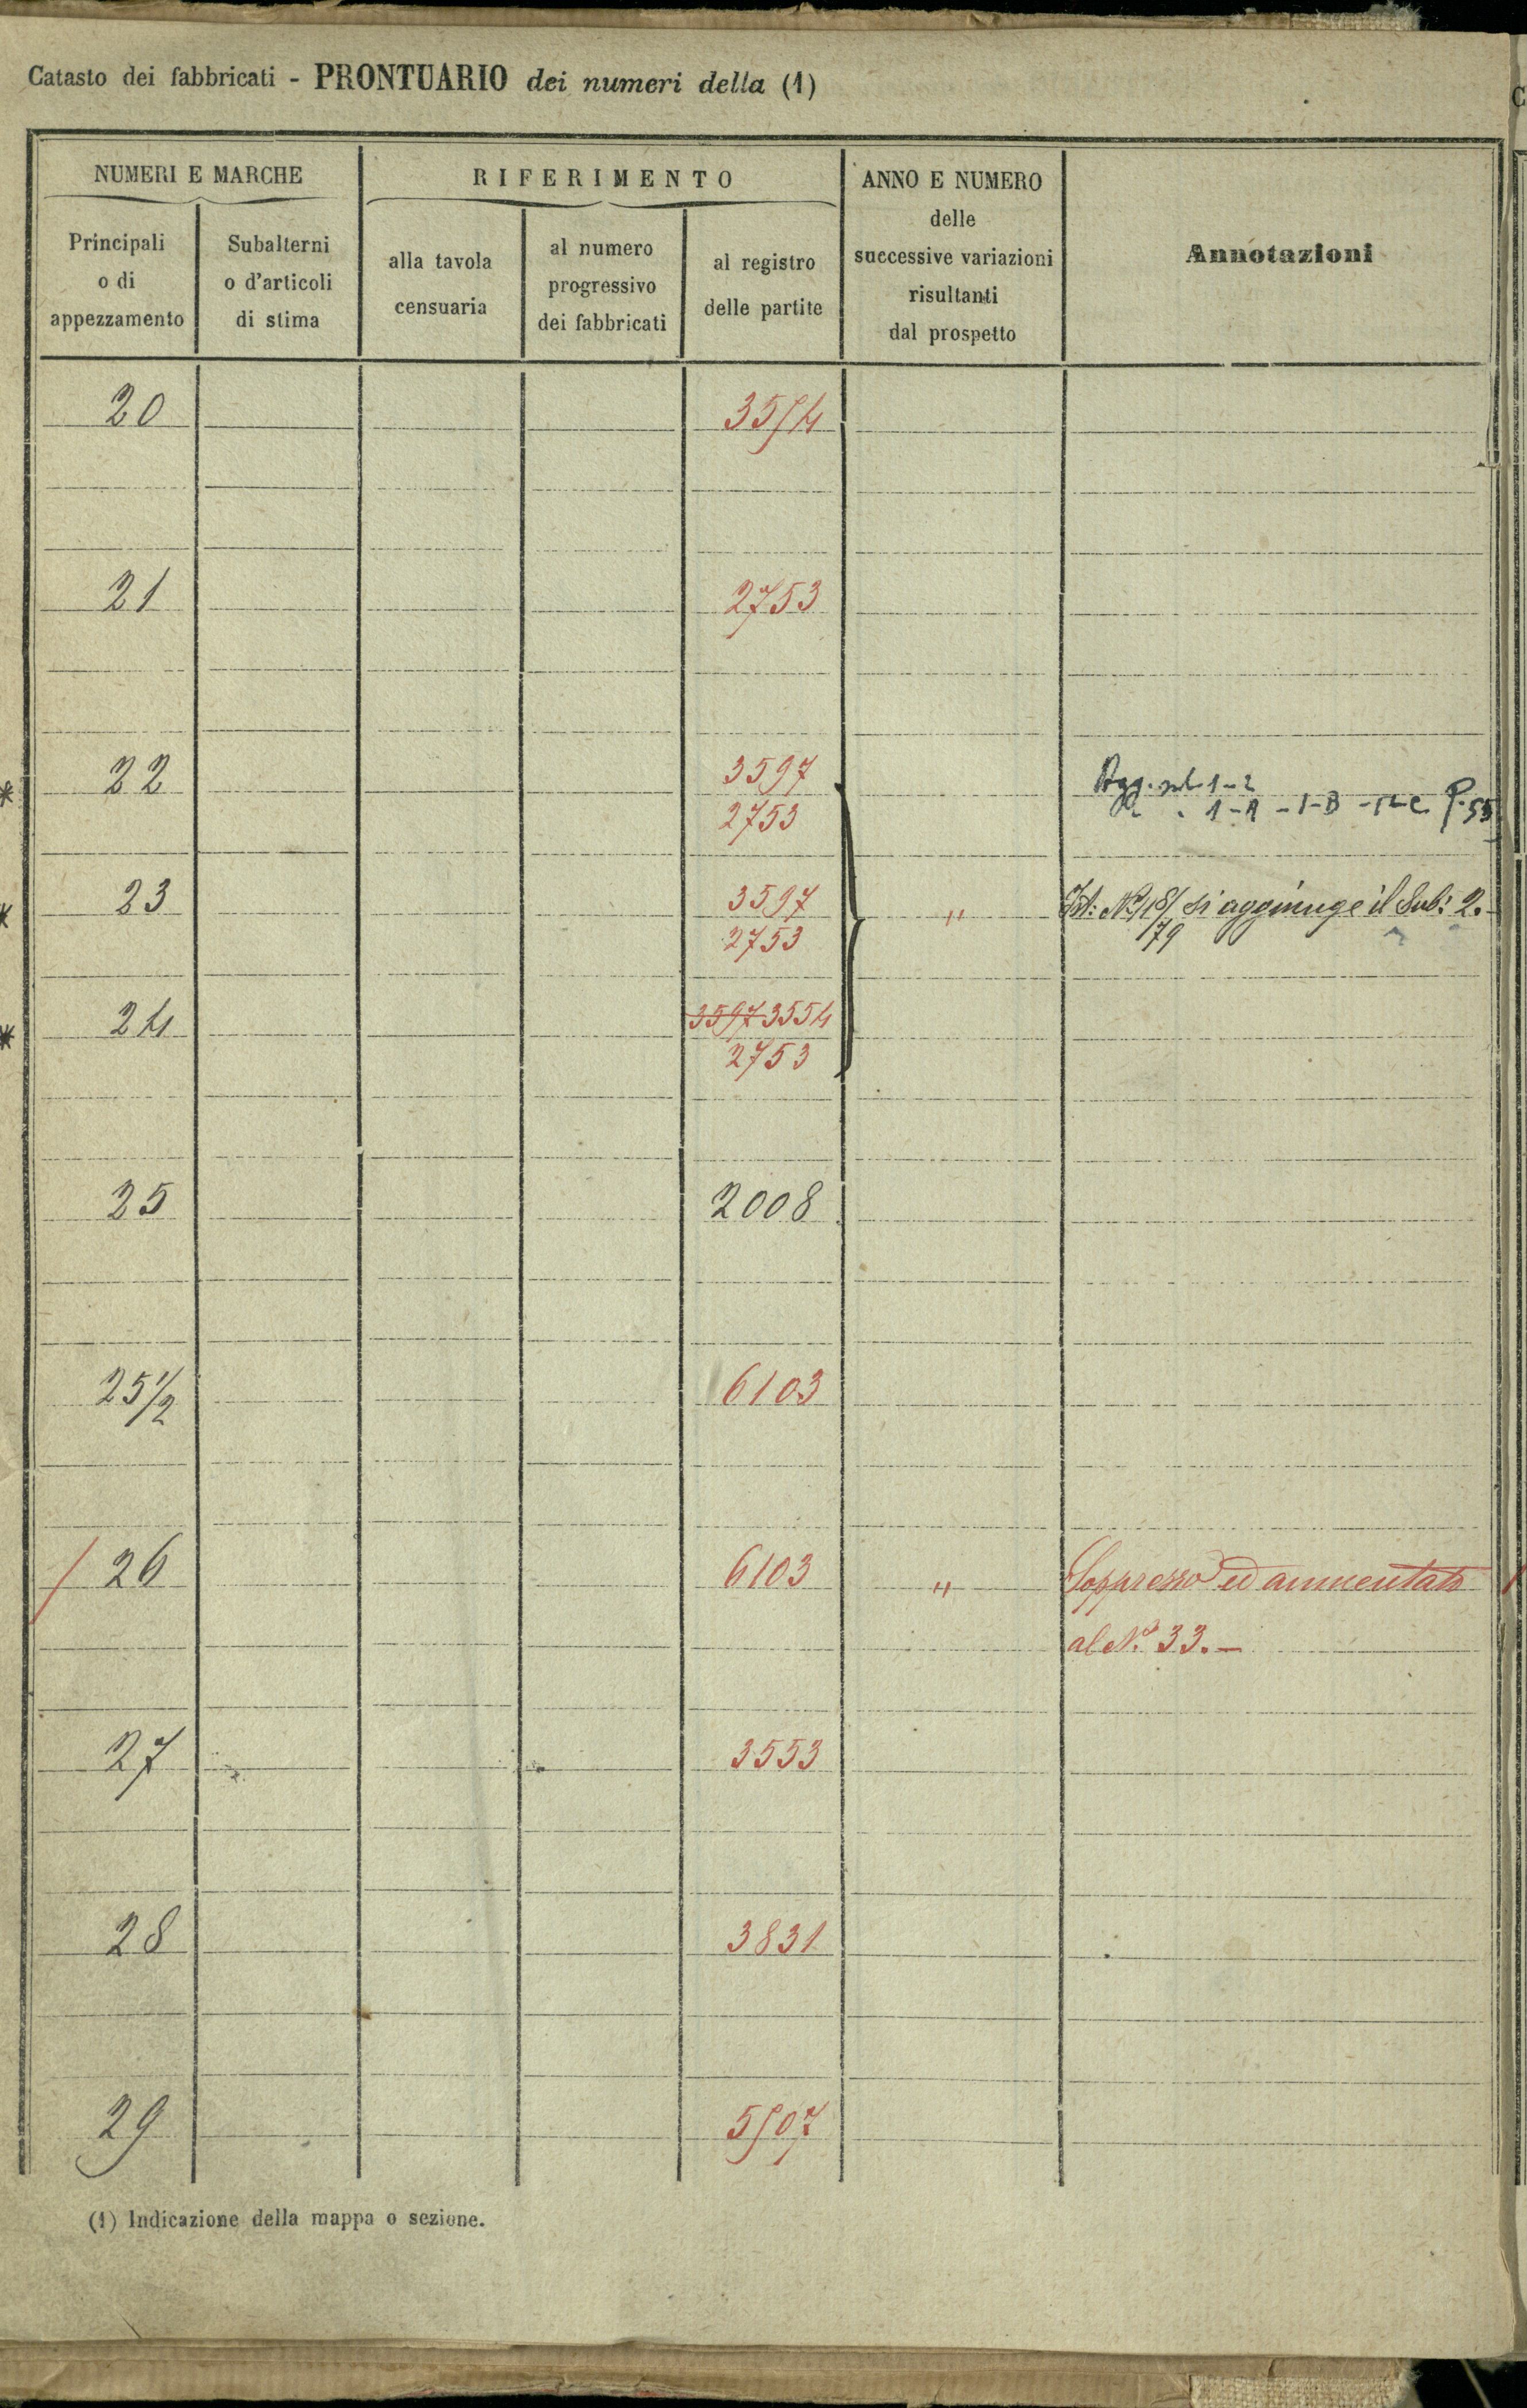 Catasto dei fabbricati - PRONTUARIO dei numeri della (1)
NUMERI E MARCHE
RIFERIMENTO
ANNO E NUMERO
delle
successive variazioni
risultanti
dal prospetto
Annotazioni
Principali
o di
appezzamento
Subalterni
o d'articoli
di stima
alla tavola
censuaria
al numero
progressivo
dei fabbricati
al registro
delle partite
20
21 2753
22 3597
2753
Agg. sub 1-2
1-A - 1-B
23 3597 " si aggiunge il Sub: 2.
2753 79
24 3597 3554
2753
25 2008
25 1/2 6103
/ 26 6103 " Soppresso ed aumentato
al No. 33.-
27 3553
28 3831
29
(1) Indicazione della mappa o sezione.